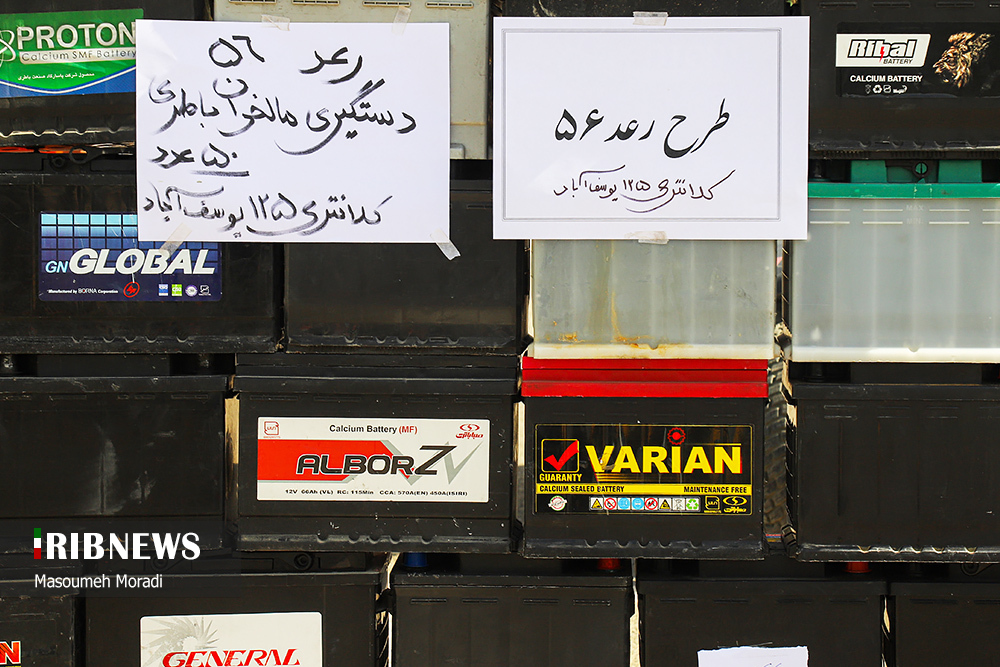 PROTON
Calcium SMF Battery
محصول شرکت پاسارگاد صنعت باطری
رعد ۵۶
دستگیری مالخران باطری
۵۰ عدد
کلانتری ۱۲۵ یوسف آباد
طرح رعد ۵۶
کلانتری ۱۲۵ یوسف آباد
Ribal
BATTERY
CALCIUM BATTERY
GN GLOBAL
Manufactured by BORNA Corporation
Calcium Battery (MF)
صباباتری
ALBORZ
12V 66Ah (VL) RC: 115Min CCA: 570A(EN) 450A(ISIRI)
VARIAN
GUARANTY
CALCIUM SEALED BATTERY MAINTENANCE FREE
IRIBNEWS
Masoumeh Moradi
GENERAL